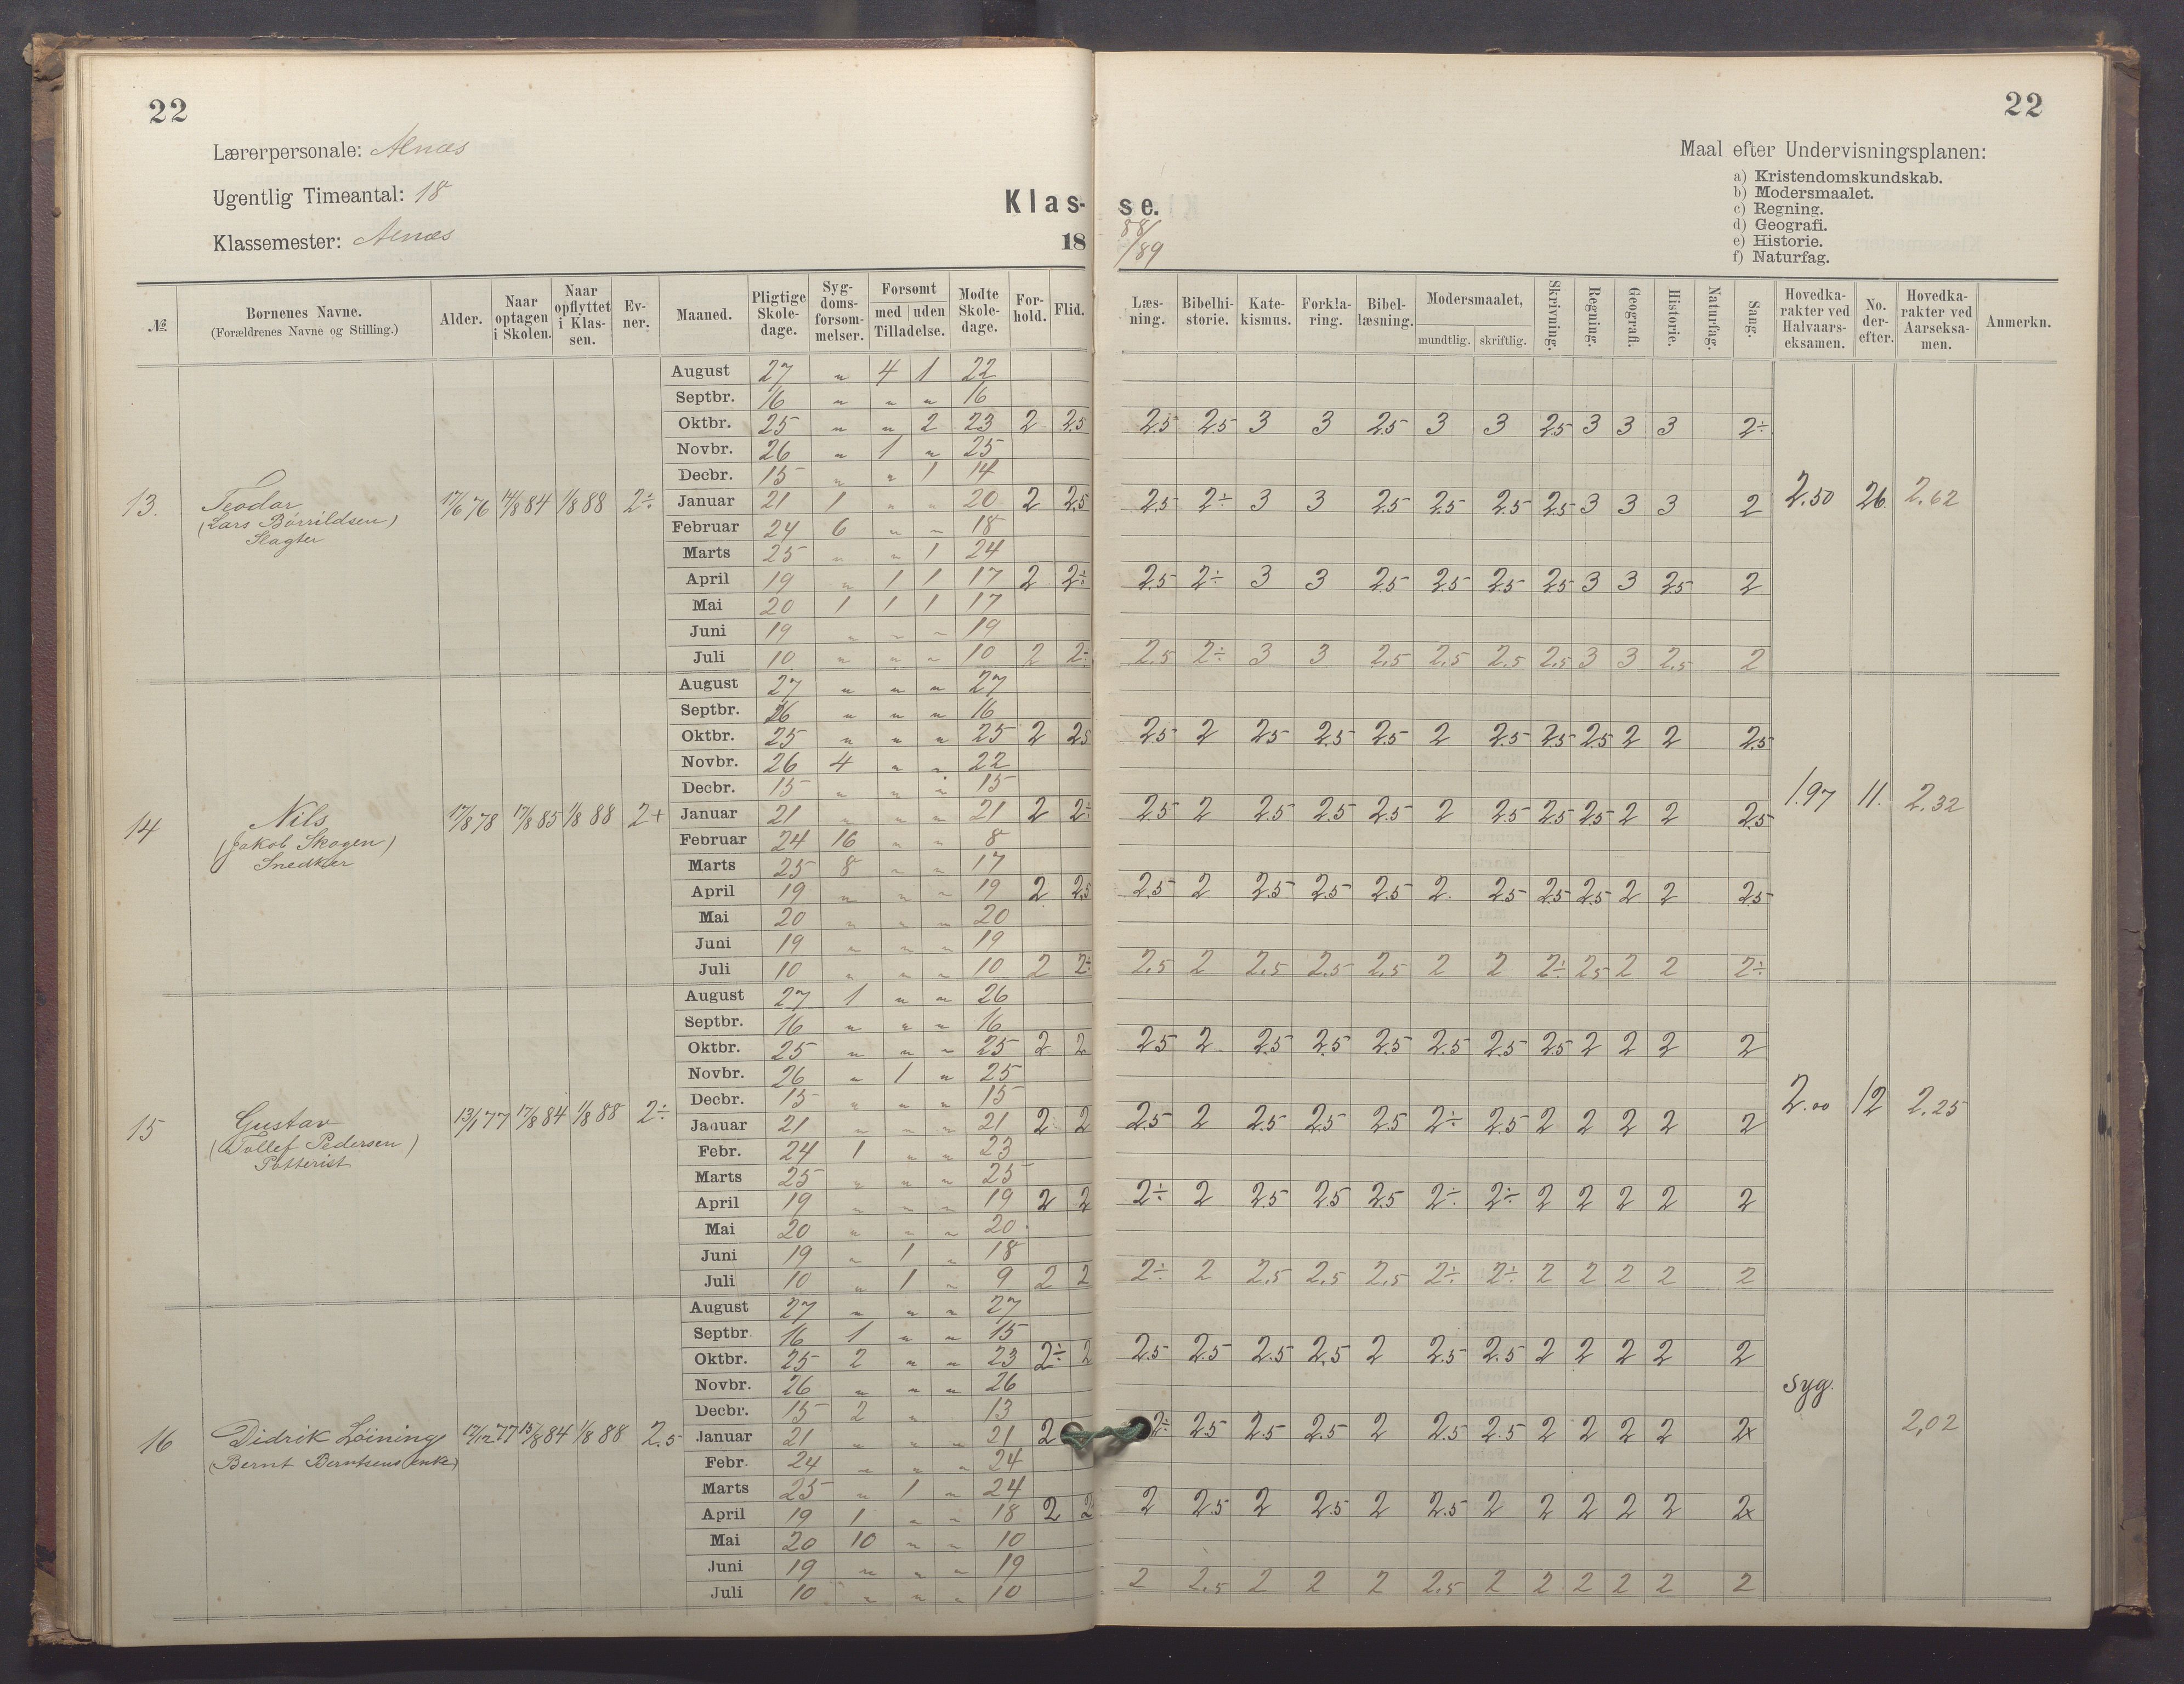 22
22
Lærerpersonale: Alnæs
Ugentlig Timeantal: 18
Klassemester: Alnæs
Klas- se.
18 88/89
Maal efter Undervisningsplanen:
a) Kristendomskundskab.
b) Modersmaalet.
c) Regning.
d) Geografi.
e) Historie.
f) Naturfag.
№ Bornenes Navne. (Forældrenes Navne og Stilling.) Alder. Naar optagen i Skolen. Naar opflyttet i Klassen. Evner. Maaned. Pligtige Skoledage. Sygdomsforsommelser. Forsomt med uden Tilladelse. Modte Skoledage. Forhold. Flid. Læsning. Bibelhistorie. Katekismus. Forklaring. Bibellæsning. Modersmaalet, mundtlig. skriftlig. Skrivning. Regning. Geografi. Historie. Naturfag. Sang. Hovedkarakter ved Halvaarseksamen. No. derefter. Hovedkarakter ved Aarseksamen. Anmerkn.
13. Teodor (Lars Børrildsen) Slagter 17/6 76 14/8 84 1/8 88 2÷ 2.50 26 2.62
August 27 „ 4 1 22
Septbr. 16 „ „ „ 16
Oktbr. 25 „ „ 2 23 2 2.5 2.5 2.5 3 3 2.5 3 3 2.5 3 3 3 2÷
Novbr. 26 „ 1 „ 25
Decbr. 15 „ „ 1 14
Januar 21 1 „ „ 20 2 2.5 2.5 2÷ 3 3 2.5 2.5 2.5 2.5 3 3 3 2
Februar 24 6 „ „ 18
Marts 25 „ „ 1 24
April 19 „ 1 1 17 2 2÷ 2.5 2÷ 3 3 2.5 2.5 2.5 2.5 3 3 2.5 2
Mai 20 1 1 1 17
Juni 19 „ „ „ 19
Juli 10 „ „ „ 10 2 2÷ 2.5 2÷ 3 3 2.5 2.5 2.5 2.5 3 3 2.5 2
14 Nils (Jakob Skogen) Snedker 17/8 78 17/8 85 1/8 88 2+ 1.97 11. 2.32
August 27 „ „ „ 27
Septbr. 16 „ „ „ 16
Oktbr. 25 „ „ „ 25 2 2.5 2.5 2 2.5 2.5 2.5 2 2.5 2.5 2.5 2 2 2.5
Novbr. 26 4 „ „ 22
Decbr. 15 „ „ „ 15
Januar 21 „ „ „ 21 2 2÷ 2.5 2 2.5 2.5 2.5 2 2.5 2.5 2.5 2 2 2.5
Februar 24 16 „ „ 8
Marts 25 8 „ „ 17
April 19 „ „ „ 19 2 2.5 2.5 2 2.5 2.5 2.5 2. 2.5 2.5 2.5 2 2 2.5
Mai 20 „ „ „ 20
Juni 19 „ „ „ 19
Juli 10 „ „ „ 10 2 2÷ 2.5 2 2.5 2.5 2.5 2 2 2÷ 2.5 2 2 2÷
15 Gustav (Tollef Pedersen) Potterist 13/1 77 17/8 84 1/8 88 2÷ 2.00 12 2.25
August 27 1 „ „ 26
Septbr. 16 „ „ „ 16
Oktbr. 25 „ „ „ 25 2 2 2.5 2 2.5 2.5 2.5 2.5 2.5 2.5 2 2 2 2
Novbr. 26 „ 1 „ 25
Decbr. 15 „ „ „ 15
Januar 21 „ „ „ 21 2 2 2.5 2 2.5 2.5 2.5 2÷ 2.5 2 2 2 2 2
Febr. 24 1 „ „ 23
Marts 25 „ „ „ 25
April 19 „ „ „ 19 2 2 2÷ 2 2.5 2.5 2.5 2÷ 2÷ 2 2 2 2 2
Mai 20 „ „ „ 20
Juni 19 „ 1 „ 18
Juli 10 „ 1 „ 9 2 2 2÷ 2 2.5 2.5 2.5 2÷ 2÷ 2 2 2 2 2
16 Didrik Løining (Bernt Berntsens enke) 17/12 77 15/8 84 1/8 88 2.5 Syg. 2,02
August 27 „ „ „ 27
Septbr 16 1 „ „ 15
Oktbr. 25 2 „ „ 23 2÷ 2 2.5 2.5 2.5 2.5 2 2.5 2.5 2 2 2 2 2
Novbr. 26 „ „ „ 26
Decbr. 15 2 „ 13
Januar 21 „ „ „ 21 2 2÷ 2.5 2.5 2.5 2 2.5 2.5 2 2 2 2 2x
Febr. 24 „ „ „ 24
Marts 25 „ 1 „ 24
April 19 1 „ „ 18 2 2 2 2.5 2 2.5 2 2.5 2 2 2 2 2 2x
Mai 20 10 „ „ 10
Juni 19 „ „ „ 19
Juli 10 „ „ „ 10 2 2.5 2 2 2 2.5 2 2 2 2 2 2